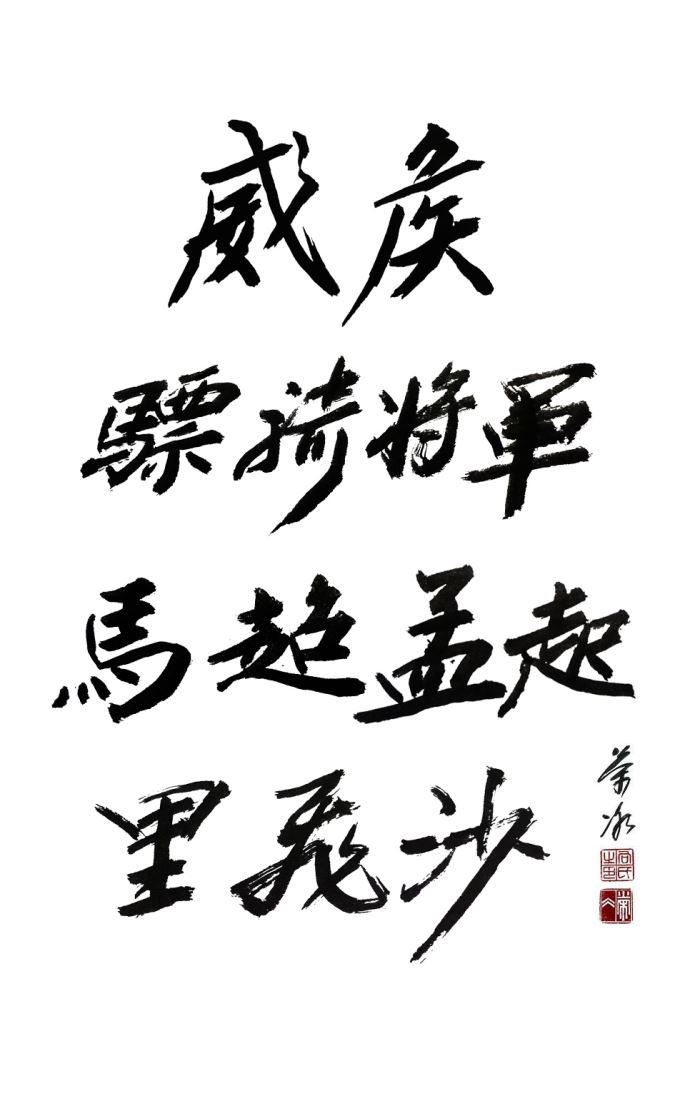 威侯
驃騎将軍
馬超孟起
里飛沙